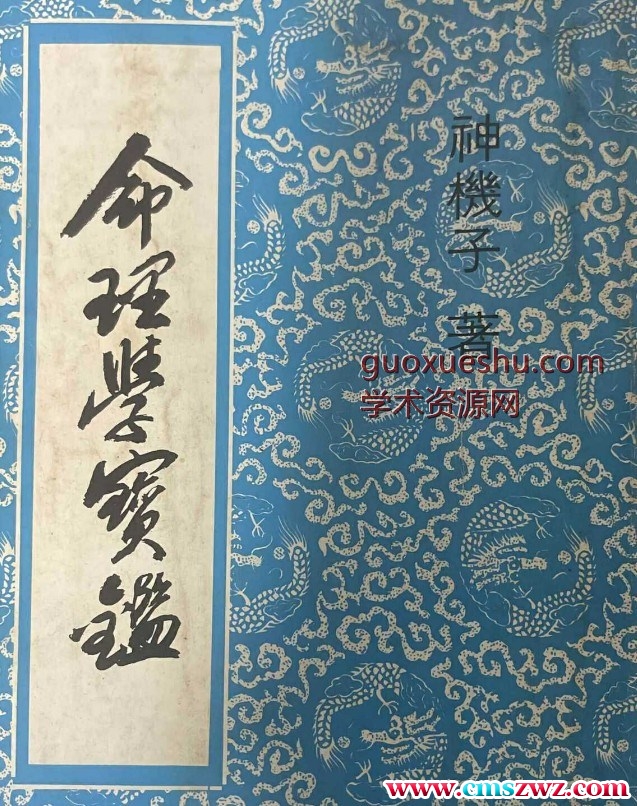 命理學寶鑑
神機子 著
guoxueshu.com
学术资源网
www.cmszwz.com